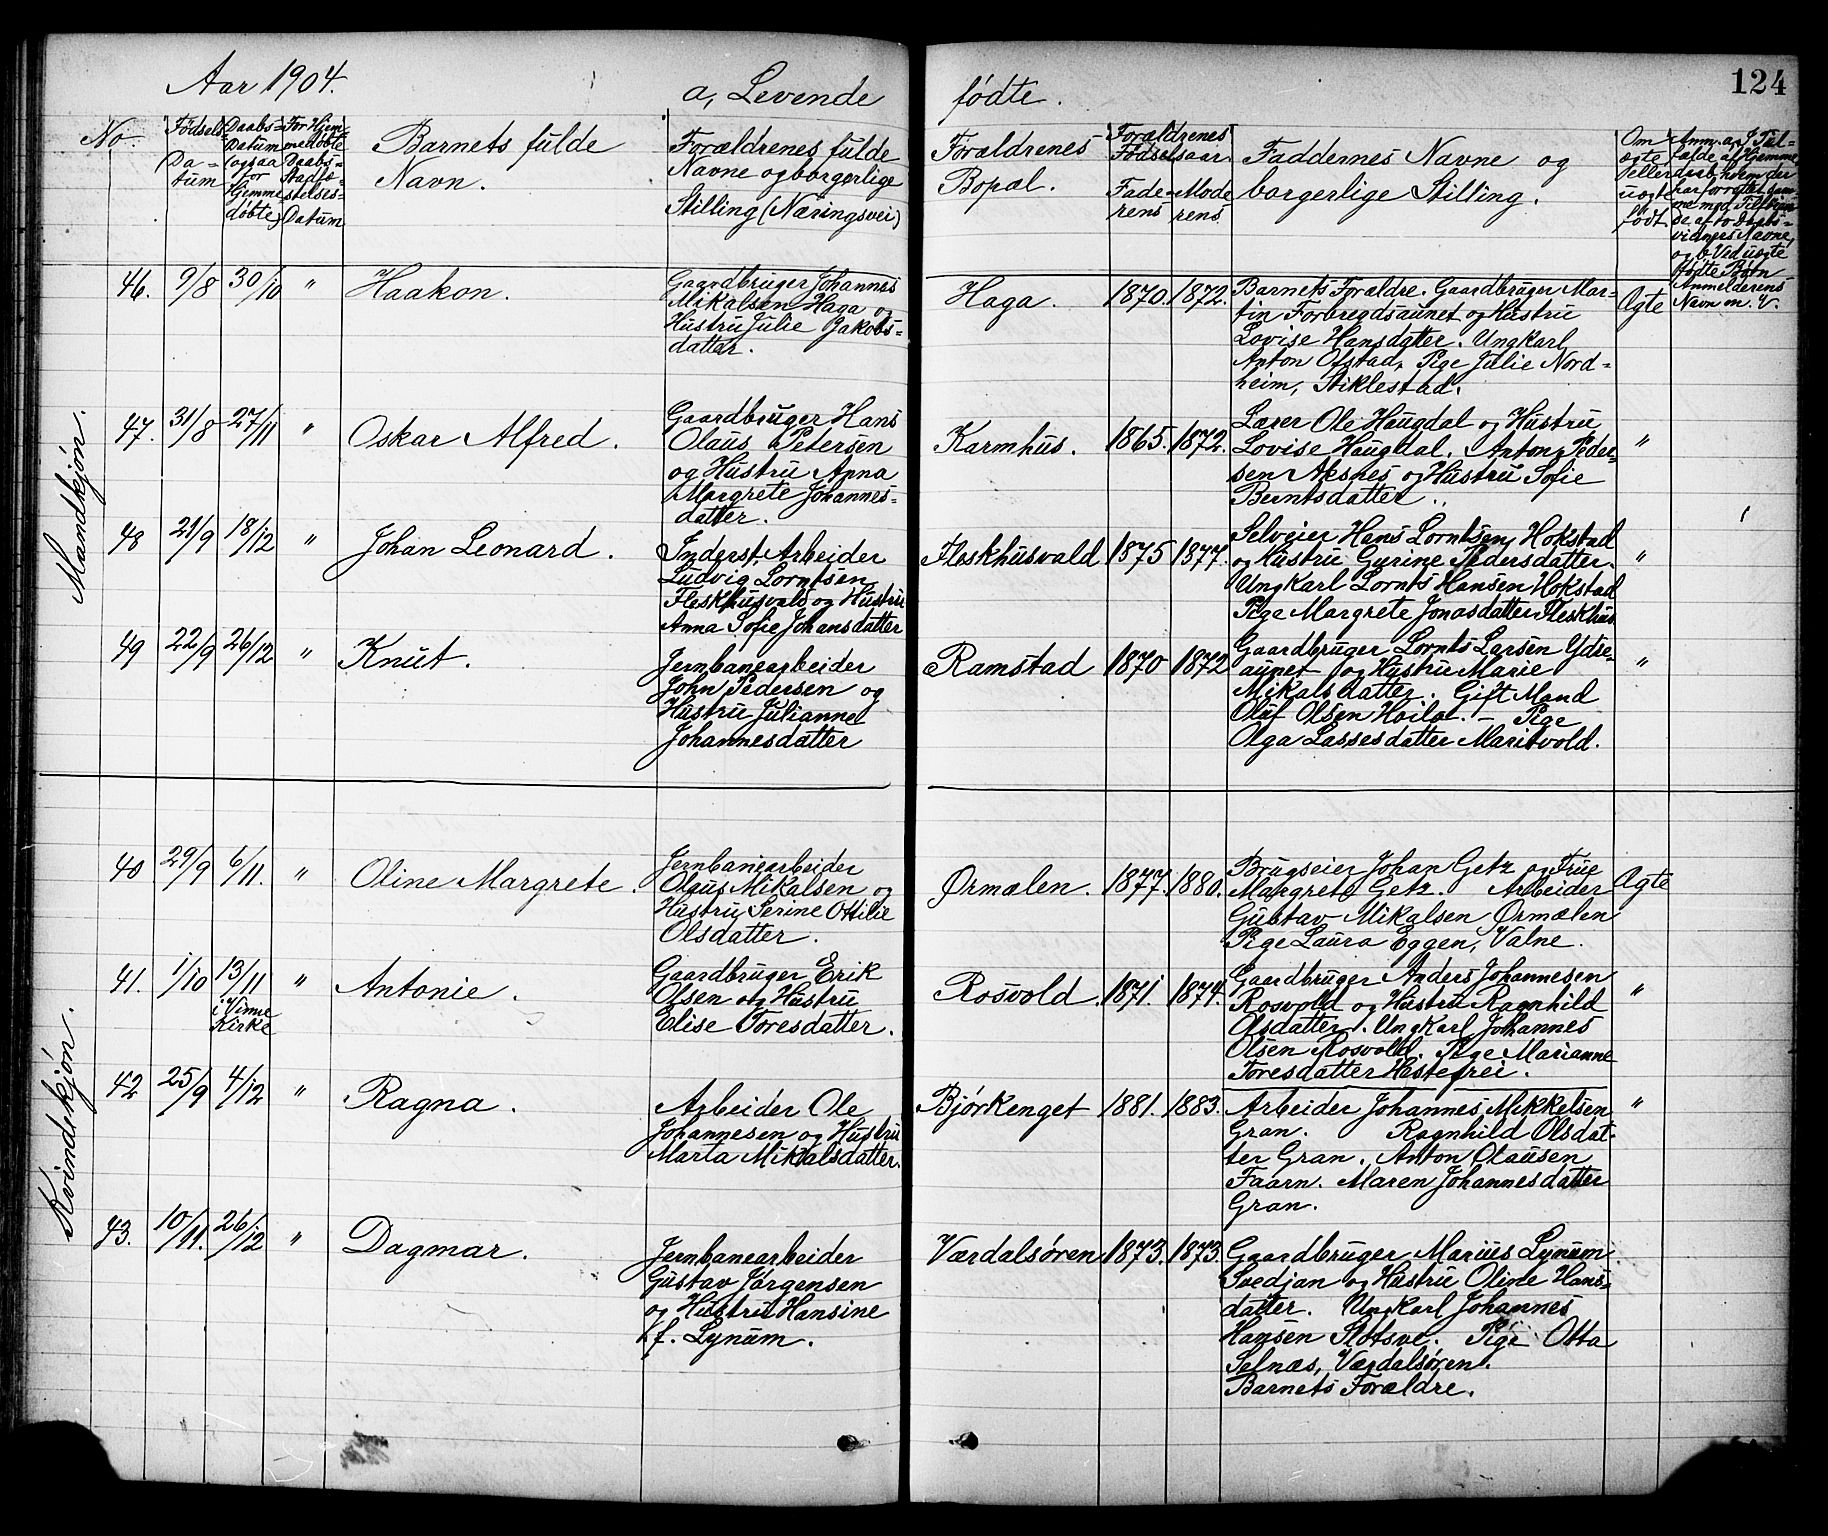 124
Aar 1904. a, Levende fødte.
No. Fødsels-Datum Daabs-Datum (ogsaa for Hjemmedøbte) For Hjemmedøbte Daabs-Stadfæstelses-Datum Barnets fulde Navn. Forældrenes fulde Navne og borgerlige Stilling (Næringsvei) Forældrenes Bopæl. Forældrenes Fødselsaar Faderens Moderens Faddernes Navne og borgerlige Stilling. Om ægte eller uægte født.
Mandkjøn.
46. 9/8 30/10 " Haakon.
Gaardbruger Johannes
Mikalsen Haga og
Hustru Julie Jakobs-
datter.
Haga. 1870. 1872.
Barnets Forældre. Gaardbruger Mar-
tin Forbregdsaunet og Hustru
Lovise Hansdatter. Ungkarl
Anton Ofstad, Pige Julie Nord-
heim, Stiklestad.
Ægte
47. 31/8 27/11 " Oskar Alfred.
Gaardbruger Hans
Olaus Petersen
og Hustru Anna
Margrete Johannes-
datter.
Karmhus. 1865. 1872.
Lærer Ole Haugdal og Hustru
Lovise Haugdal. Anton Peder-
sen Aksnes og Hustru Sofie
Berntsdatter.
"
48 21/9 18/12 " Johan Leonard.
Inderst, Arbeider
Ludvig Lorntsen
Fleskhusvald og Hustru
Anna Sofie Johansdatter
Fleskhusvald 1875 1877.
Selveier Hans Lorntsen Hokstad
og Hustru Gurine Pedersdatter.
Ungkarl Lornts Hansen Hokstad
Pige Margrete Jonasdatter Fleskhus.
"
49 22/9 26/12 " Knut.
Jernbanearbeider
John Pedersen og
Hustru Julianne
Johannesdatter
Ramstad 1870 1872
Gaardbruger Lornts Larsen Ydse-
aunet og Hustru Marie
Mikalsdatter. Gift Mand
Oluf Olsen Hoilo. - Pige
Olga Lassesdatter Maritvold.
"
Kvindekjøn.
40 29/9 6/11. " Oline Margrete.
Jernbanearbeider
Olaus Mikalsen og
Hustru Serine Ottilie
Olsdatter.
Ørmælen. 1877. 1880.
Brugseier Johan Getz og Frue
Margrete Getz. Arbeider
Gustav Mikalsen Ørmælen
Pige Laura Eggen, Valne.
Ægte
41. 1/10 13/11 i Vinne Kirke " Antonie.
Gaardbruger Erik
Olsen og Hustru
Elise Toresdatter.
Rosvold. 1871. 1874.
Gaardbruger Anders Johannesen
Rosvold og Hustru Ragnhild
Olsdatter. Ungkarl Johannes
Olsen Rosvold. Pige Marianne
Toresdatter Hestegrei.
"
42 25/9 4/12 " Ragna.
Arbeider Ole
Johannesen og Hustru
Marta Mikalsdatter.
Bjørkenget 1881. 1883.
Arbeider Johannes Mikkelsen
Gran. Ragnhild Olsdat-
ter Gran. Anton Olausen
Faarn. Maren Johannesdatter
Gran.
"
43. 10/11. 26/12 " Dagmar.
Jernbanearbeider
Gustav Jørgensen
og Hustru Hansine
f. Lynum.
Værdalsøren 1873. 1873.
Gaardbruger Marius Lynum
Svedjan og Hustru Oline Hans-
datter. Ungkarl Johannes
Hansen Pige Otta
Selnæs, Værdalsøren.
Barnets Forældre.